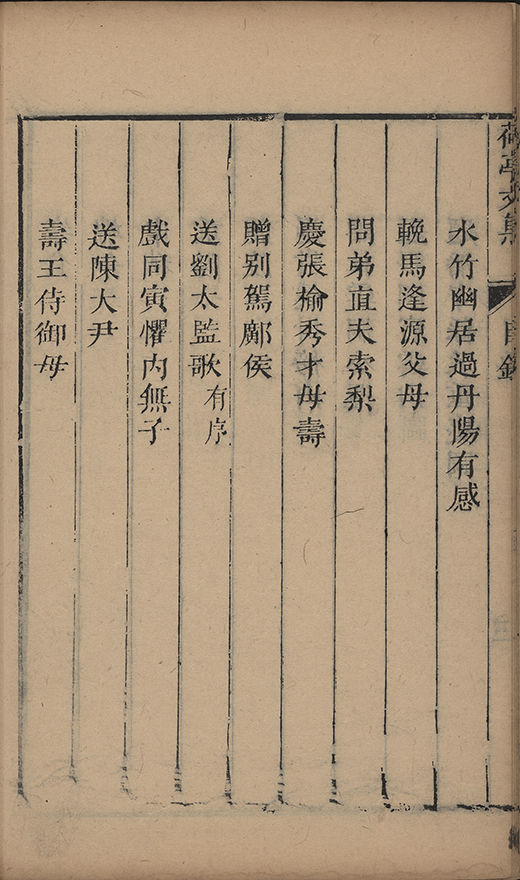 荷亭文集
目錄
水竹幽居過丹陽有感
輓馬逢源父母
問弟直夫索梨
慶張榆秀才母壽
贈别駕鄺侯
送劉太監歌有序
戲同寅懼内無子
送陳大尹
壽王侍御母